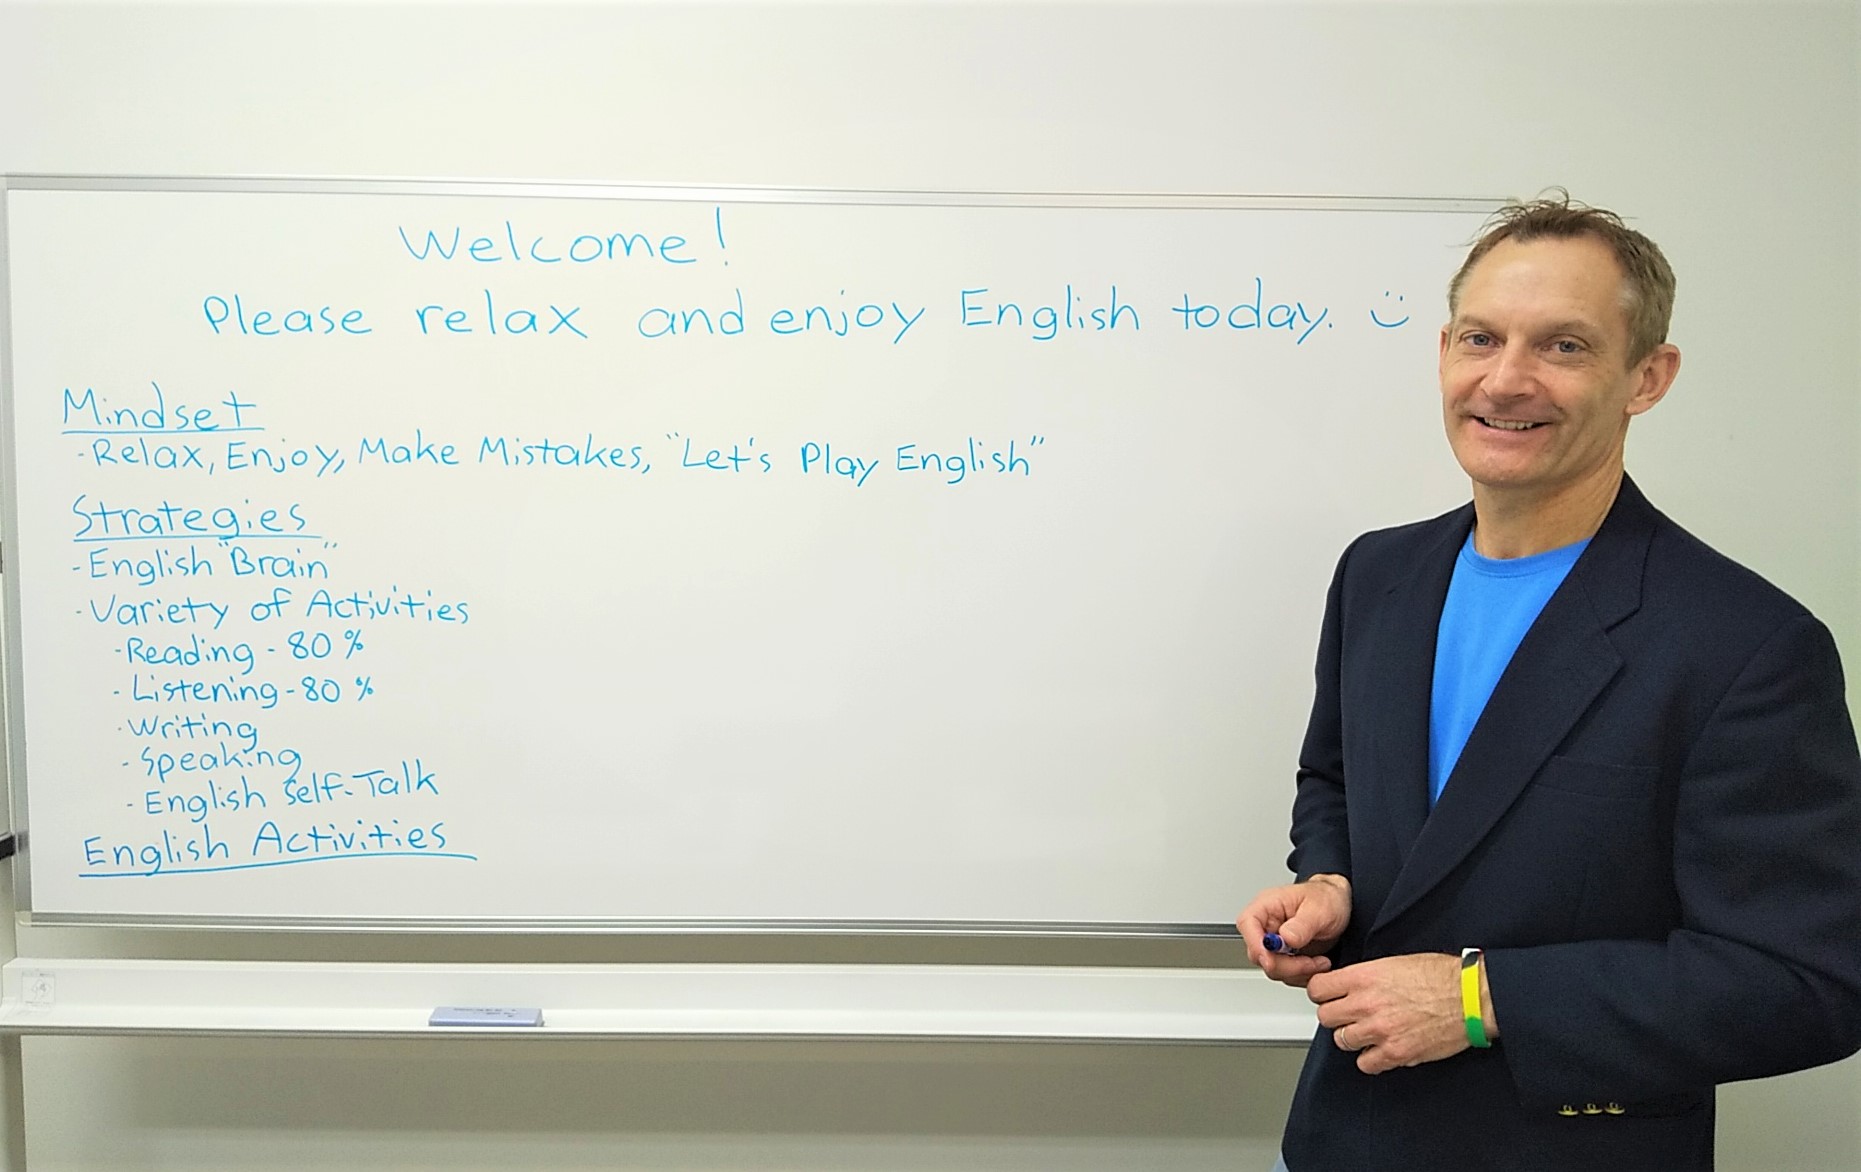 Welcome!
Please relax and enjoy English today. :)
Mindset
-Relax, Enjoy, Make Mistakes, "Let's Play English"
Strategies
-English "Brain"
-Variety of Activities
-Reading - 80%
-Listening - 80%
-Writing
-Speaking
-English Self-Talk
English Activities